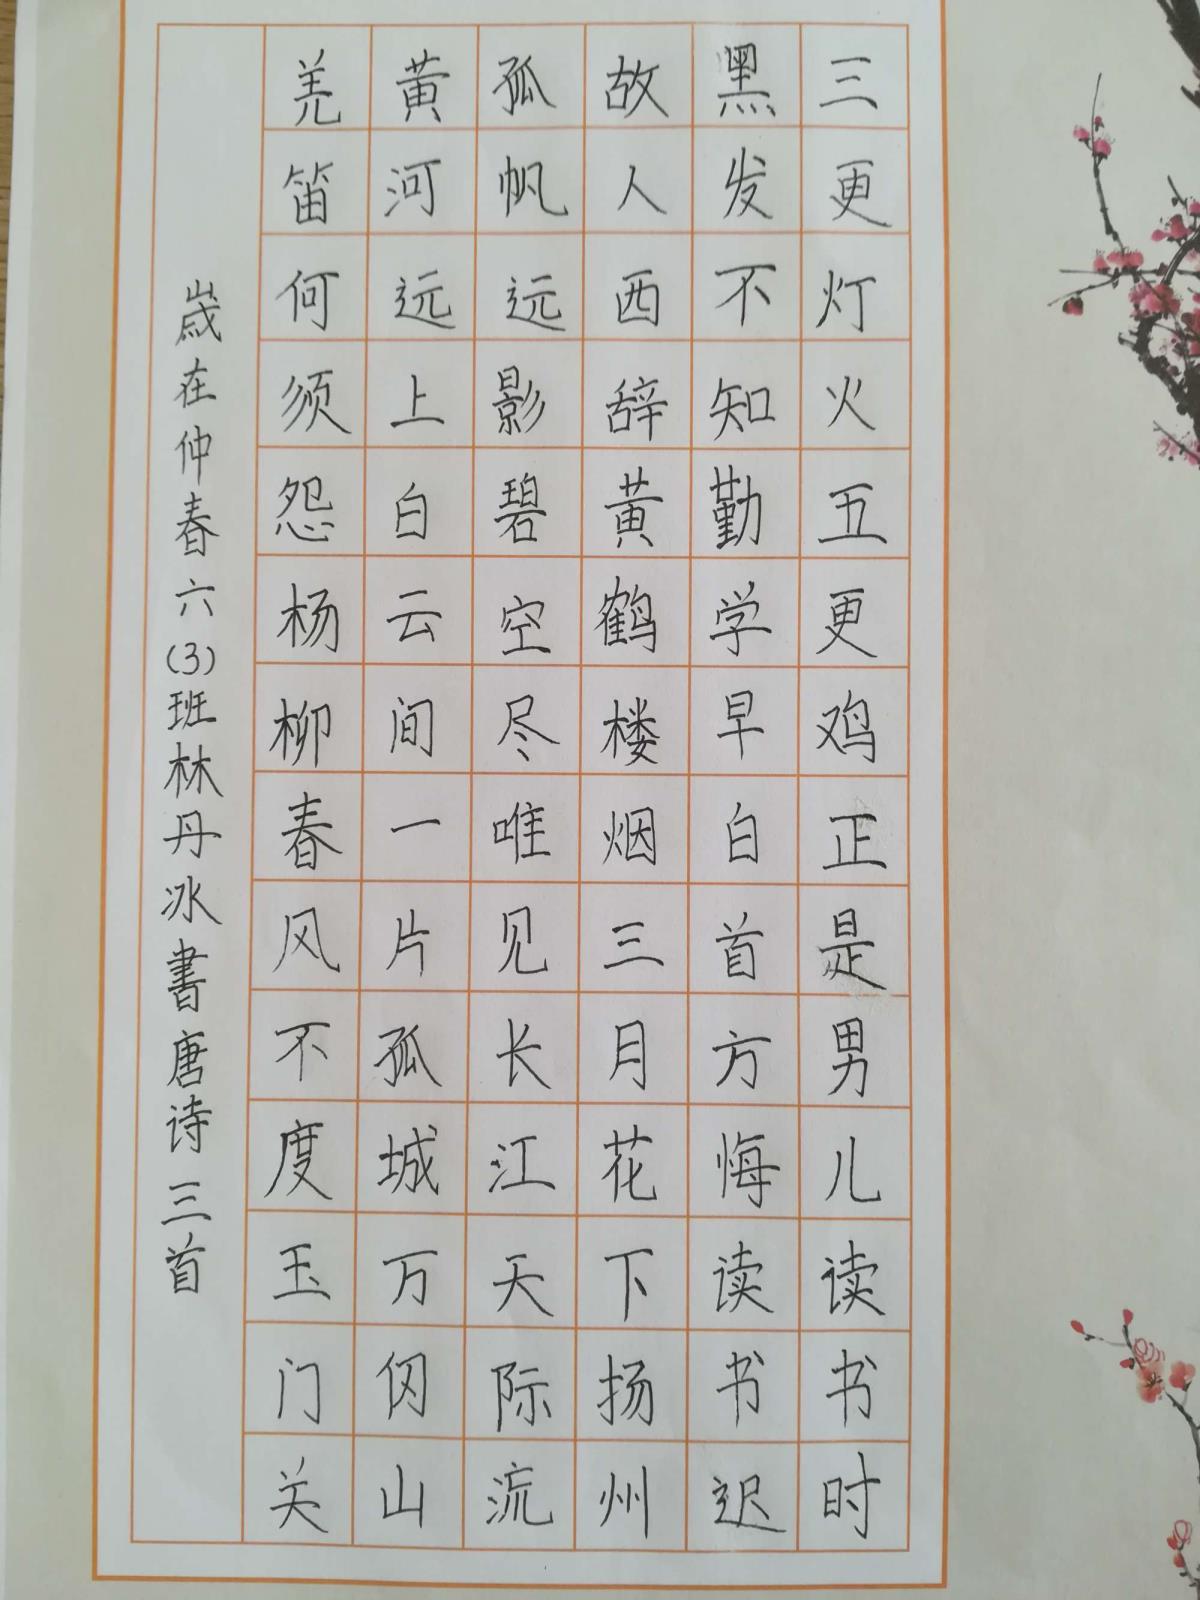 三更灯火五更鸡正是男儿读书时
黑发不知勤学早白首方悔读书迟
故人西辞黄鹤楼烟三月花下扬州
孤帆远影碧空尽唯见长江天际流
黄河远上白云间一片孤城万仞山
羌笛何须怨杨柳春风不度玉门关
歳在仲春六(3)班林丹冰書唐诗三首